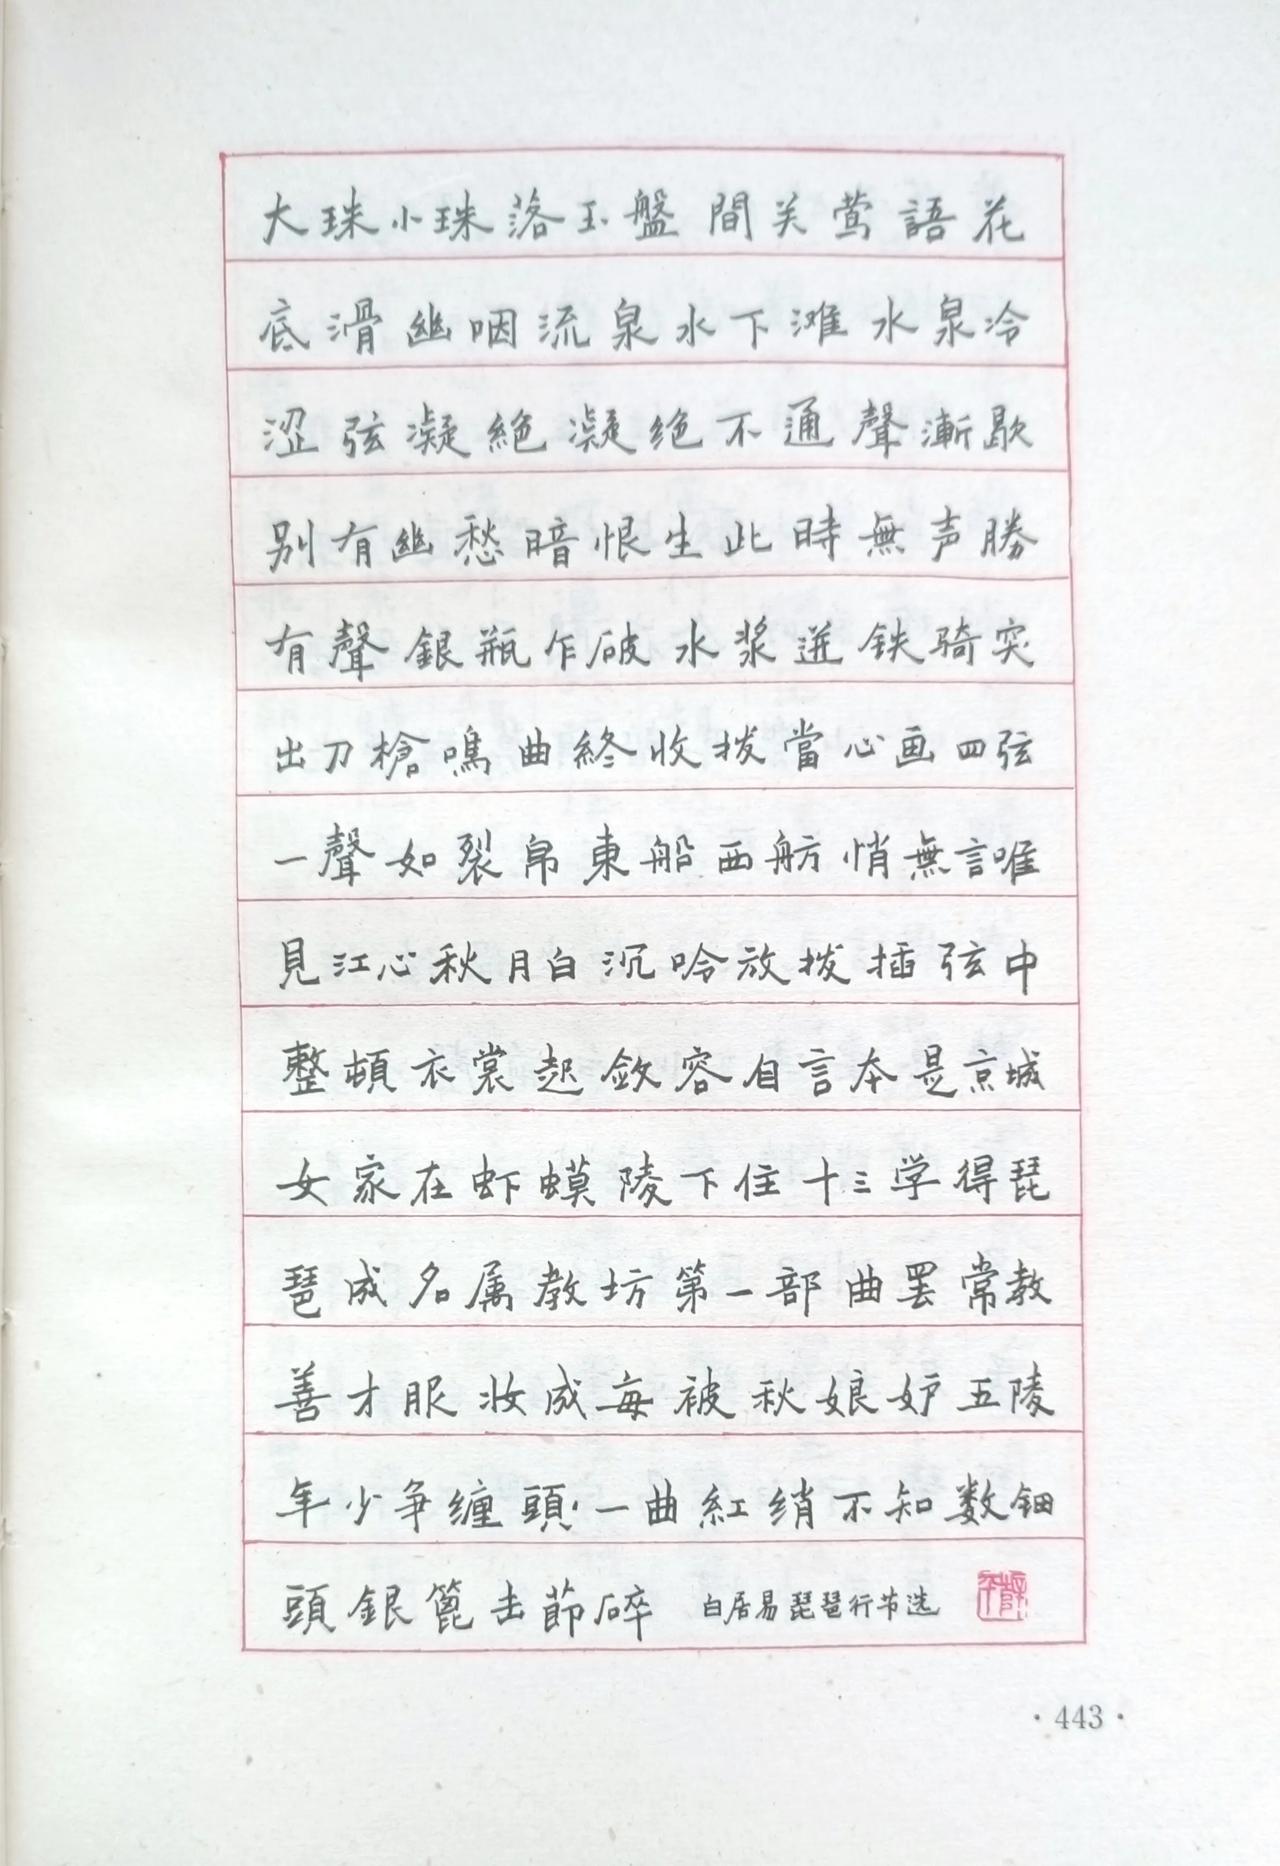 大珠小珠落玉盤間关莺語花
底滑幽咽流泉水下滩水泉冷
涩弦凝絶凝绝不通聲漸歇
别有幽愁暗恨生此時無声勝
有聲銀瓶乍破水浆迸铁骑突
出刀槍鳴曲終收拨當心画四弦
一聲如裂帛東船西舫悄無言唯
見江心秋月白沉吟放拨插弦中
整頓衣裳起敛容自言本是京城
女家在虾蟆陵下住十三学得琵
琶成名属教坊第一部曲罢常教
善才服妆成每被秋娘妒五陵
年少争缠頭一曲紅绡不知数钿
頭銀篦击節碎 白居易琵琶行节选
·443·